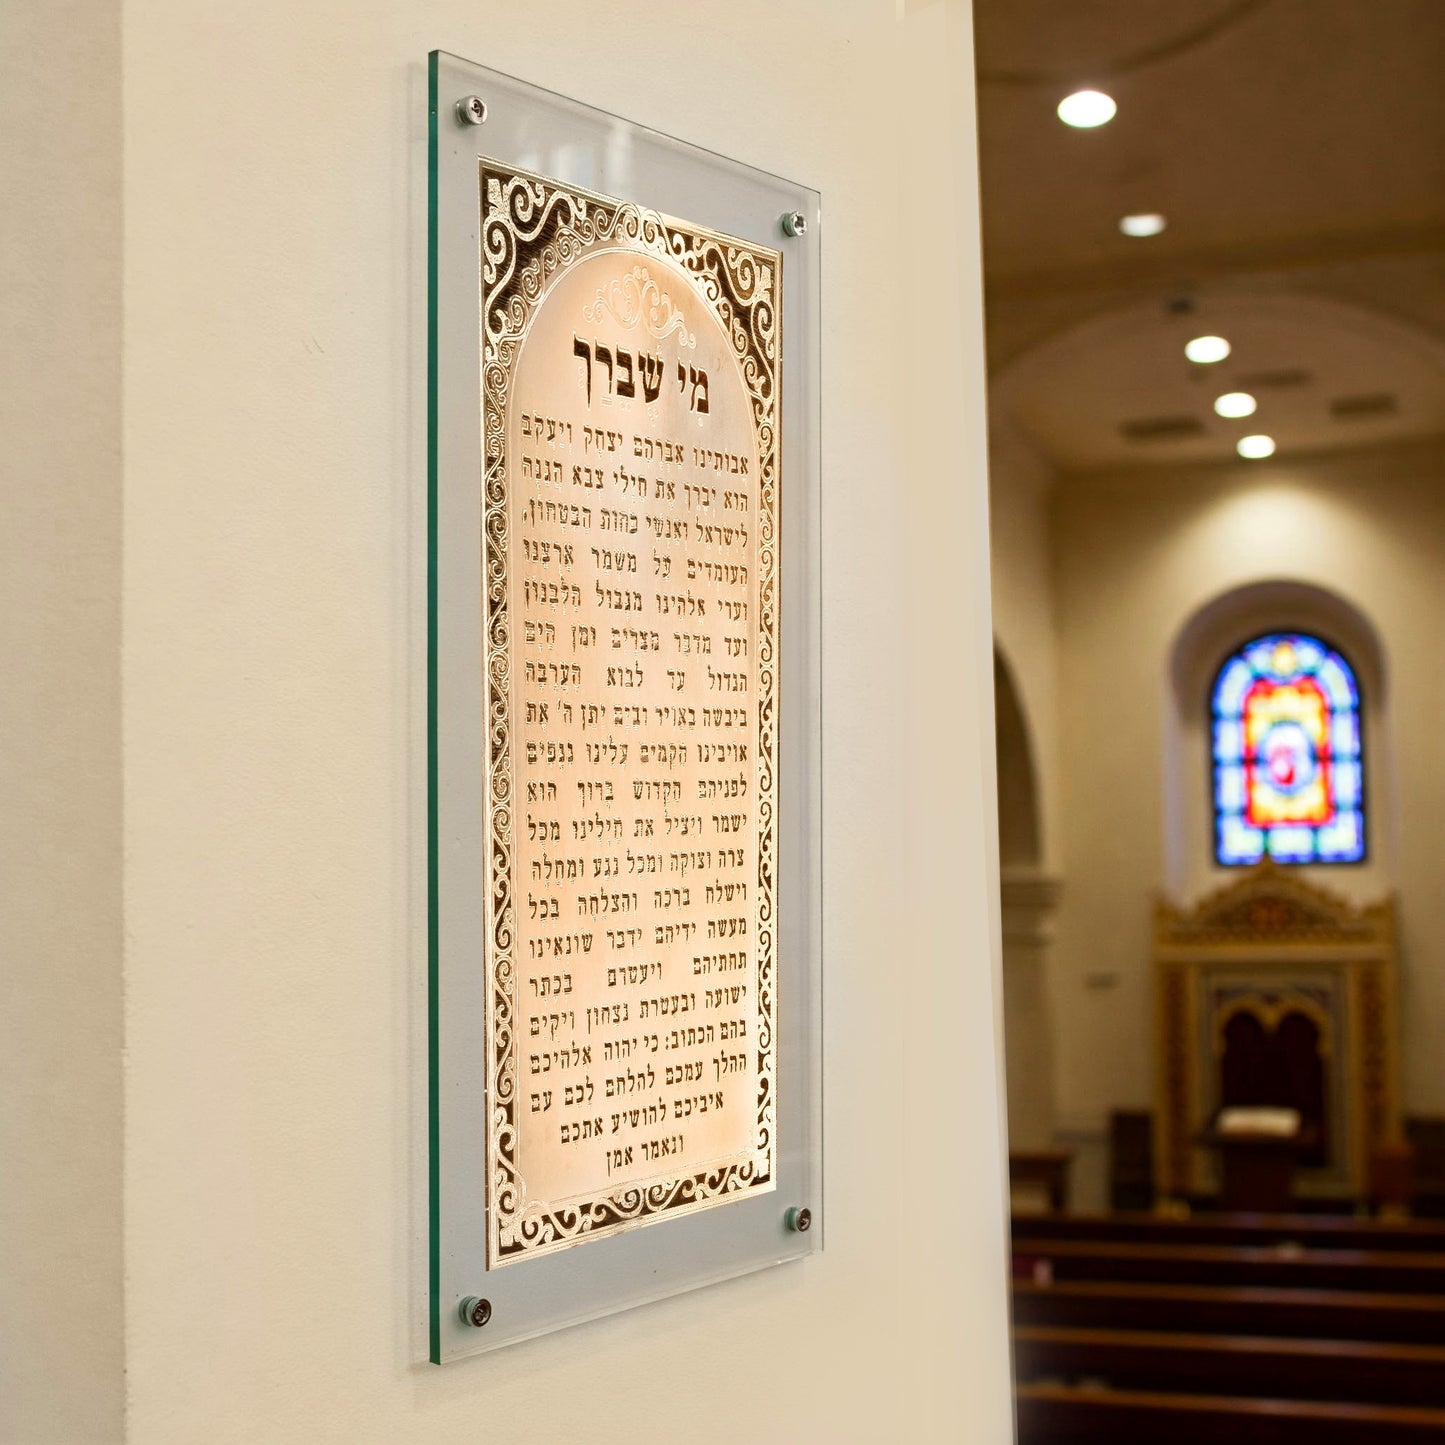 מי שברך
אבותינו אברהם יצחק ויעקב
הוא יברך את חילי צבא הגנה
לישראל ואנשי כחות הבטחון,
העומדים על משמר ארצנו
וערי אלהינו מגבול הלבנון
ועד מדבר מצרים ומן הים
הגדול עד לבוא הערבה
ביבשה באויר ובים יתן ה' את
אויבינו הקמים עלינו נגפים
לפניהם הקדוש ברוך הוא
ישמר ויציל את חילינו מכל
צרה וצוקה ומכל נגע ומחלה
וישלח ברכה והצלחה בכל
מעשה ידיהם ידבר שונאינו
תחתיהם ויעטרם בכתר
ישועה ובעטרת נצחון ויקים
בהם הכתוב: כי יהוה אלהיכם
ההלך עמכם להלחם לכם עם
איביכם להושיע אתכם
ונאמר אמן